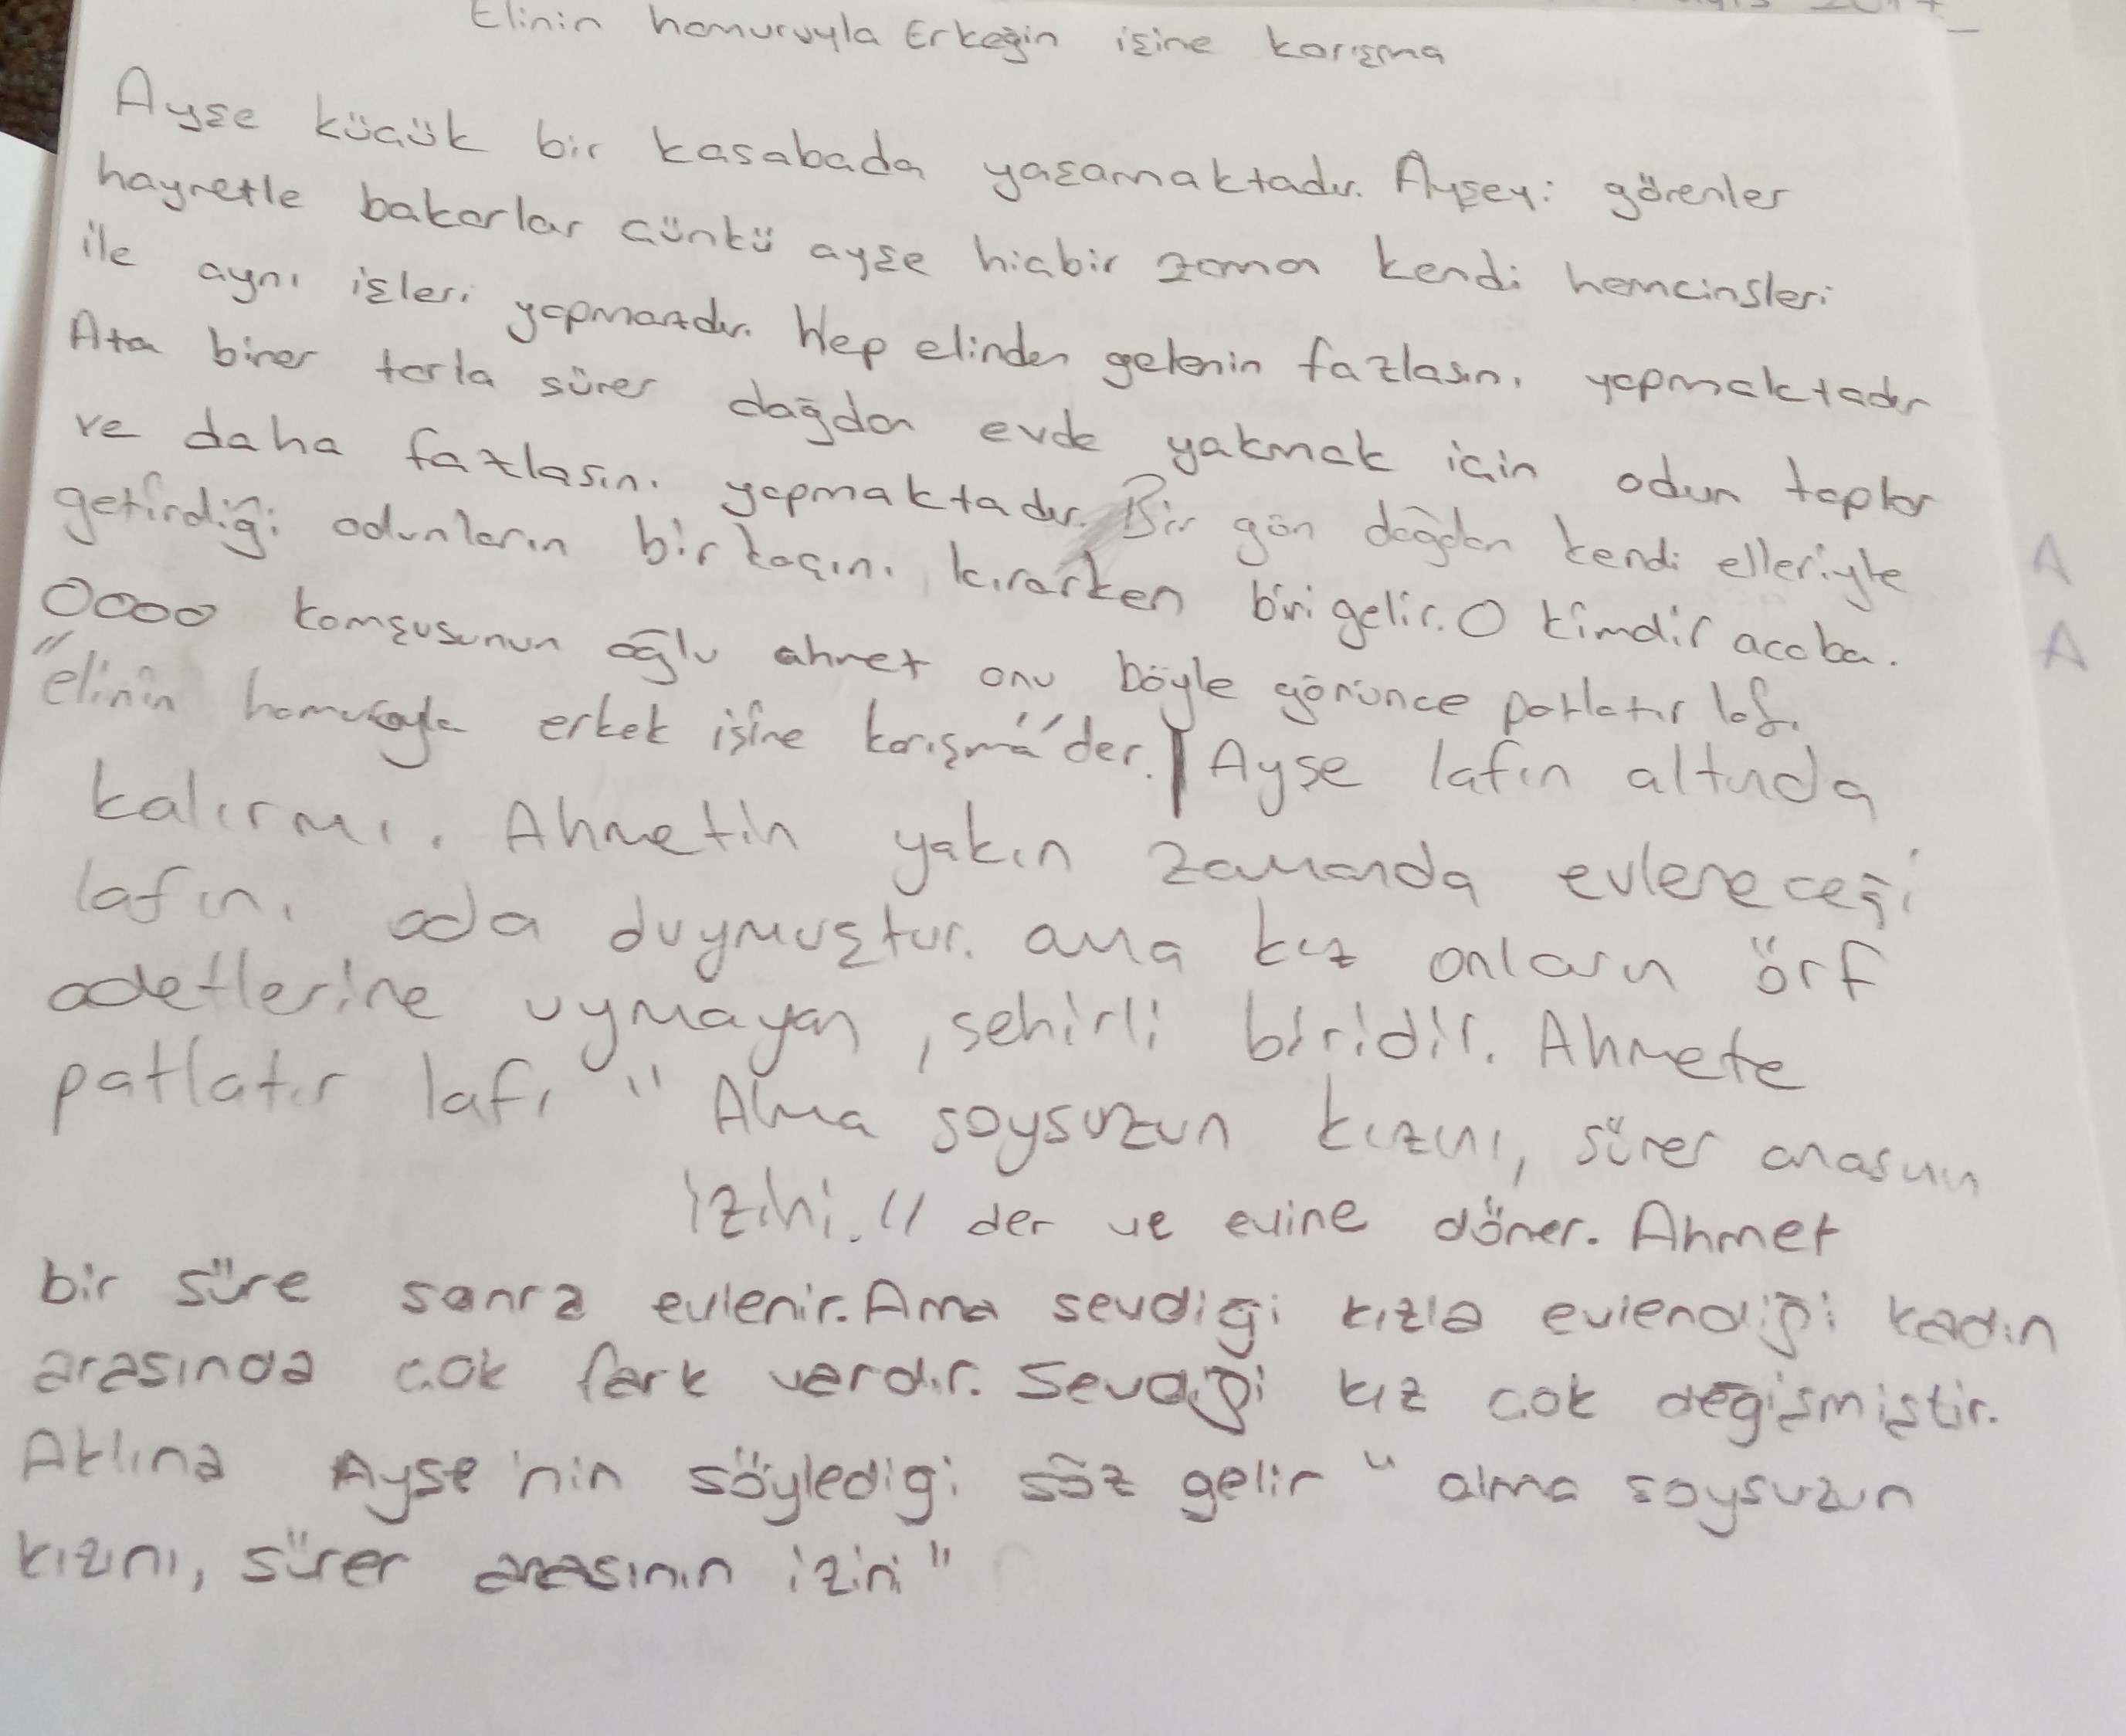 Elinin hamuruyla Erkeğin işine karışma
Ayşe küçük bir kasabada yaşamaktadır. Ayşeyi görenler
hayretle bakarlar çünkü ayşe hiçbir zaman kendi hemcinsleri
ile aynı işleri yapmazdır. Hep elinden gelenin fazlasını yapmaktadır
Ata biner tarla sürer dağdan evde yakmak için odun toplar
ve daha fazlasını yapmaktadır. Bir gün dağdan kendi elleriyle
getirdiği odunların birkaçını kırarken biri gelir. O kimdir acaba.
OOOO komşusunun oğlu ahmet onu böyle görünce patlatır lafı
"elinin hamuruyla erkek işine karışma" der. Ayşe lafın altında
kalırmı. Ahmetin yakın zamanda evleneceği
lafını oda duymuştur. ama kız onların örf
adetlerine uymayan, şehirli biridir. Ahmete
patlatır lafı " Alma soysuzun kızını, sürer anasının
izini." der ve evine döner. Ahmet
bir süre sonra evlenir. Ama sevdiği kızla evlendiği kadın
arasında çok fark vardır. Sevdiği kız çok değişmiştir.
Aklına Ayşe'nin söylediği söz gelir " alma soysuzun
kızını, sürer anasının izini"
A
A